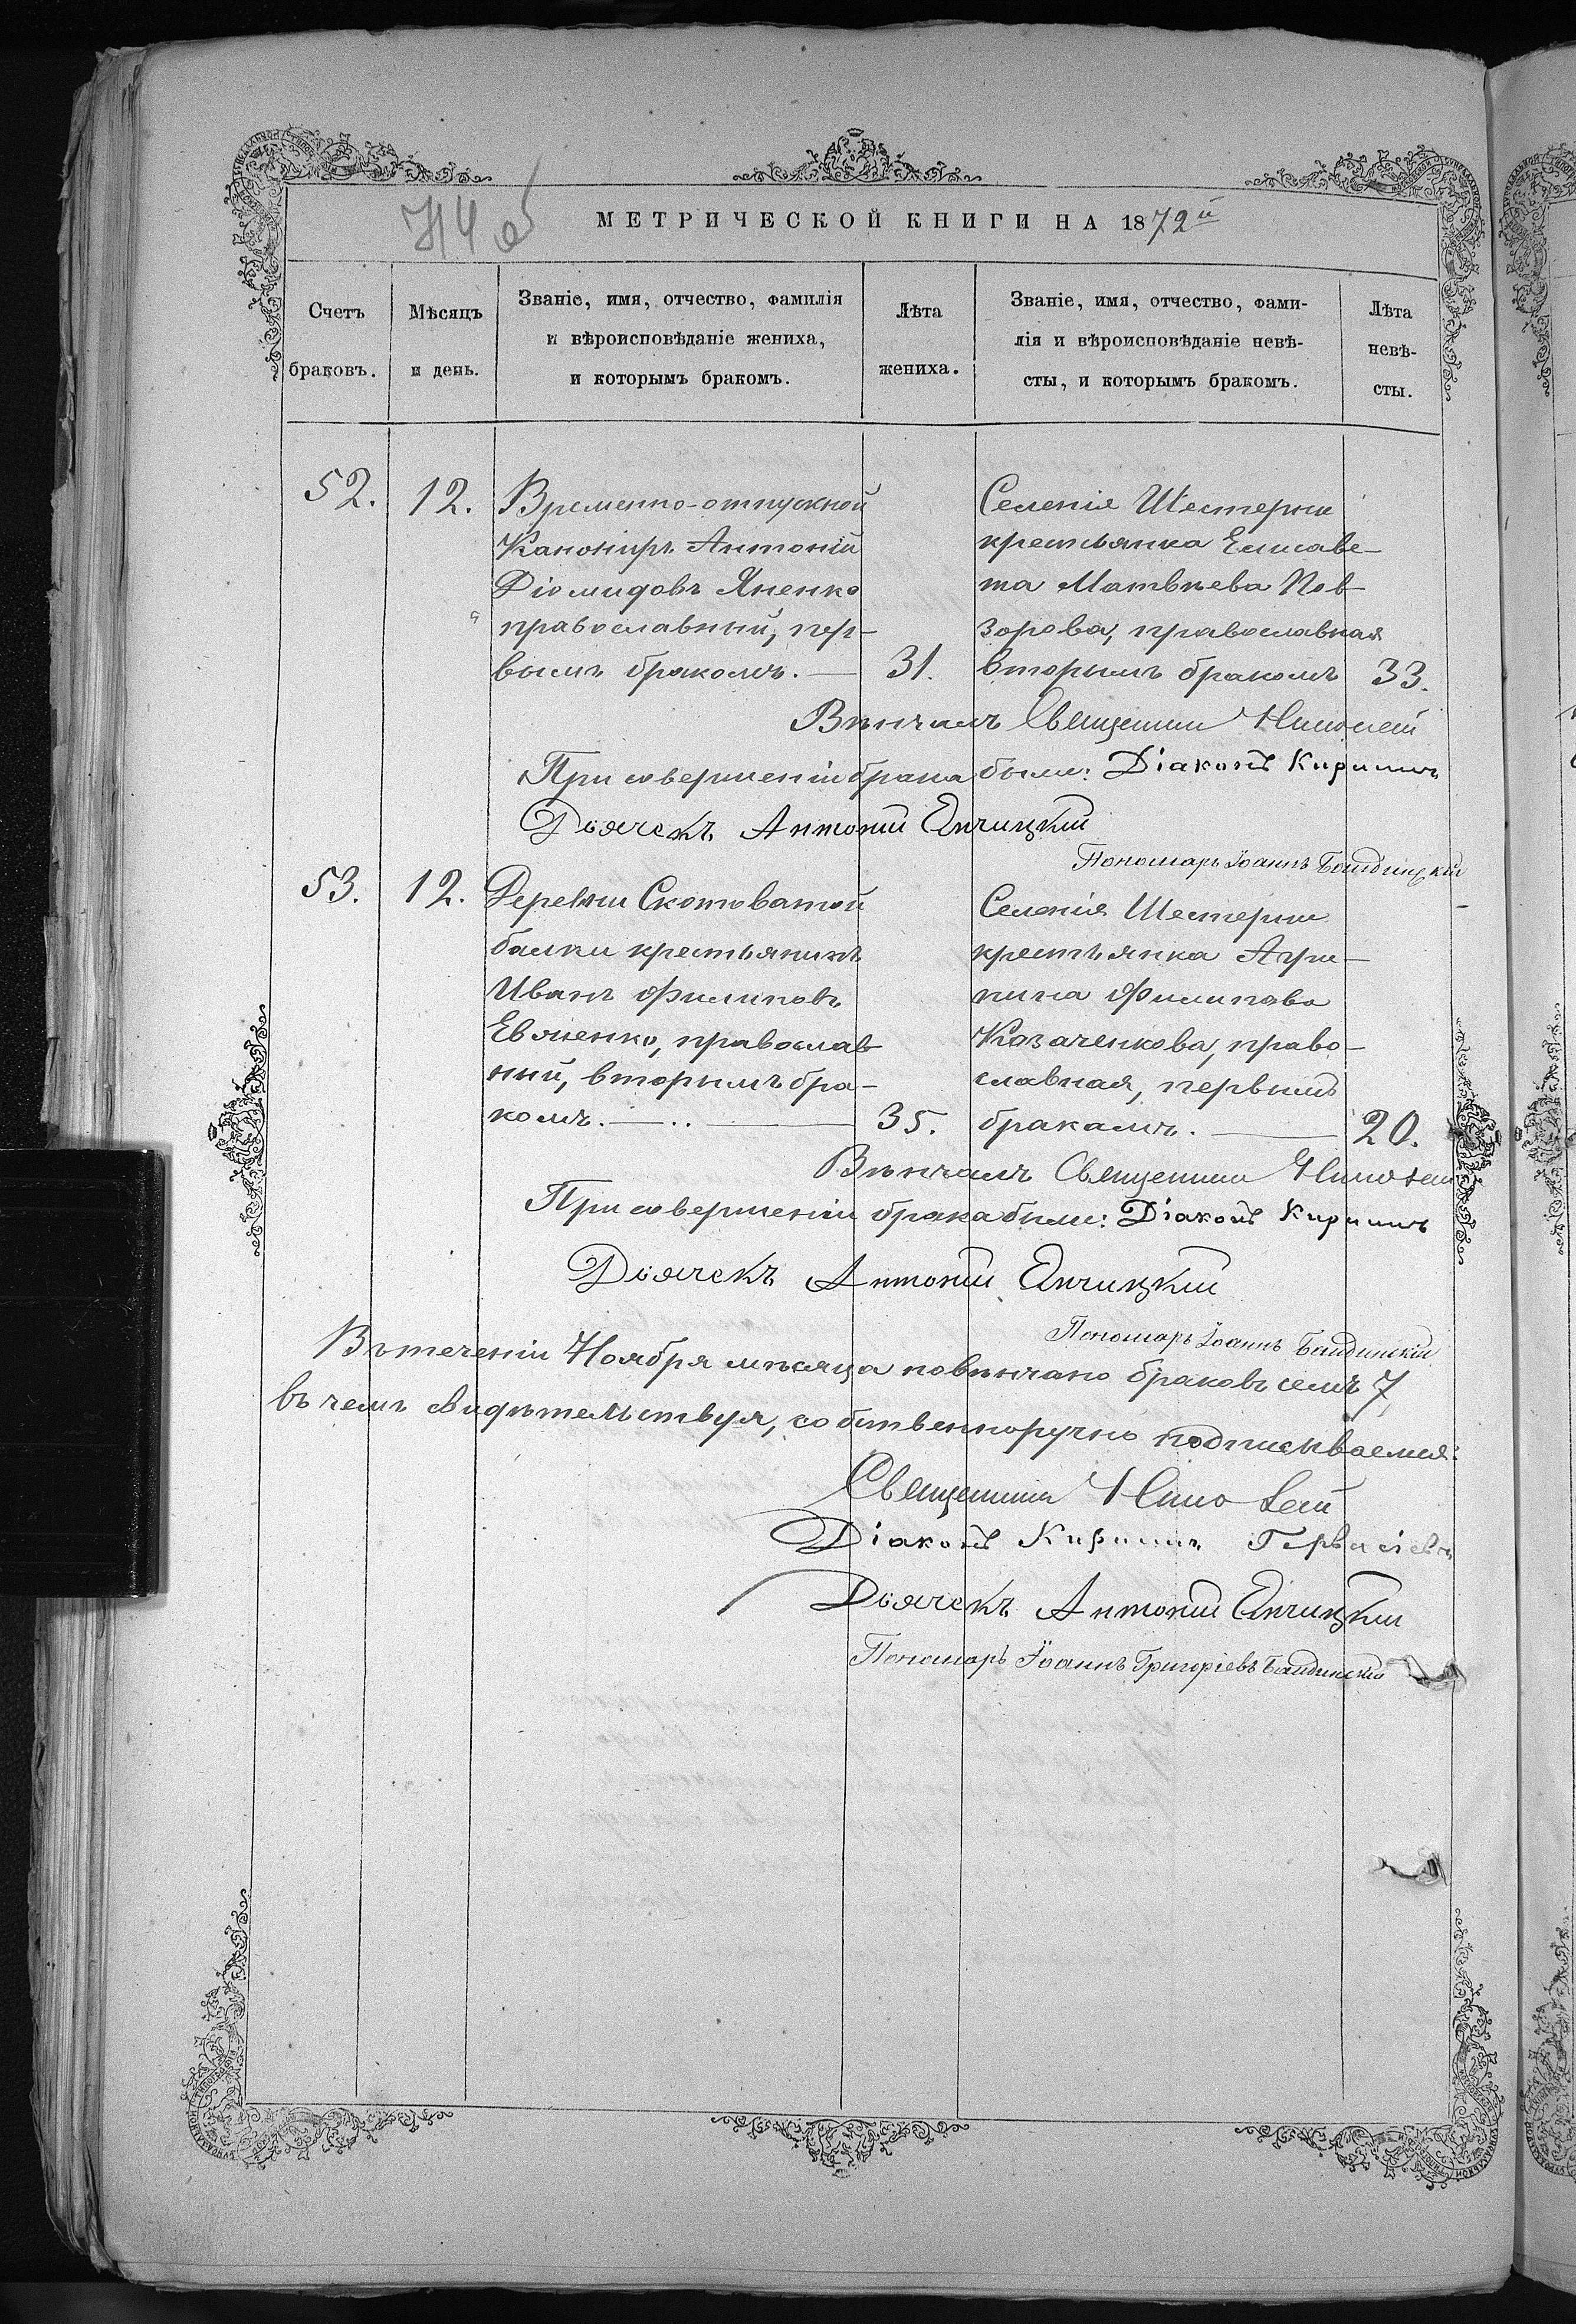 МЕТРИЧЕСКОЙ КНИГИ НА 1872й
Счетъ браковъ.
Мѣсяцъ и день.
Званіе, имя, отчество, фамилія
и вѣроисповѣданіе жениха,
и которымъ бракомъ.
Лѣта жениха.
Званіе, имя, отчество, фами-
лія и вѣроисповѣданіе невѣ-
сты, и которымъ бракомъ.
Лѣта невѣ-
сты.
52.
12.
Временно-отпускной
Канониръ Антоній
Діомидовъ Яненко
православный, пер-
вымъ бракомъ. —
31.
Селенія Шестерни
крестьянка Елисаве-
та Матвѣева Нов-
зорова, православная
вторымъ бракомъ
33.
Вѣнчалъ Священникъ
При совершеніи брака были: Діаконъ Кириллъ
Дьячекъ Антоній Янчицкій
Пономарь Іоаннъ
53.
12.
Деревни Скотоватой
балки крестьянинъ
Иванъ Филиповъ
Евяненко, православ-
ный, вторымъ бра-
комъ. —
35.
Селенія Шестерни
крестьянка Агри-
пина Филипова
Козаченкова, право-
славная, первымъ
бракомъ. —
20.
Вѣнчалъ Священникъ
При совершеніи брака были: Діаконъ Кириллъ
Дьячекъ Антоній Янчицкій
Пономарь Іоаннъ
Въ теченіи Ноября мѣсяца повѣнчано браковъ семь 7,
въ чемъ свидѣтельствуя, собственноручно подписываемся:
Священникъ
Діаконъ Кириллъ Гервасіевъ
Дьячекъ Антоній Янчицкій
Пономарь Іоаннъ Григоріевъ